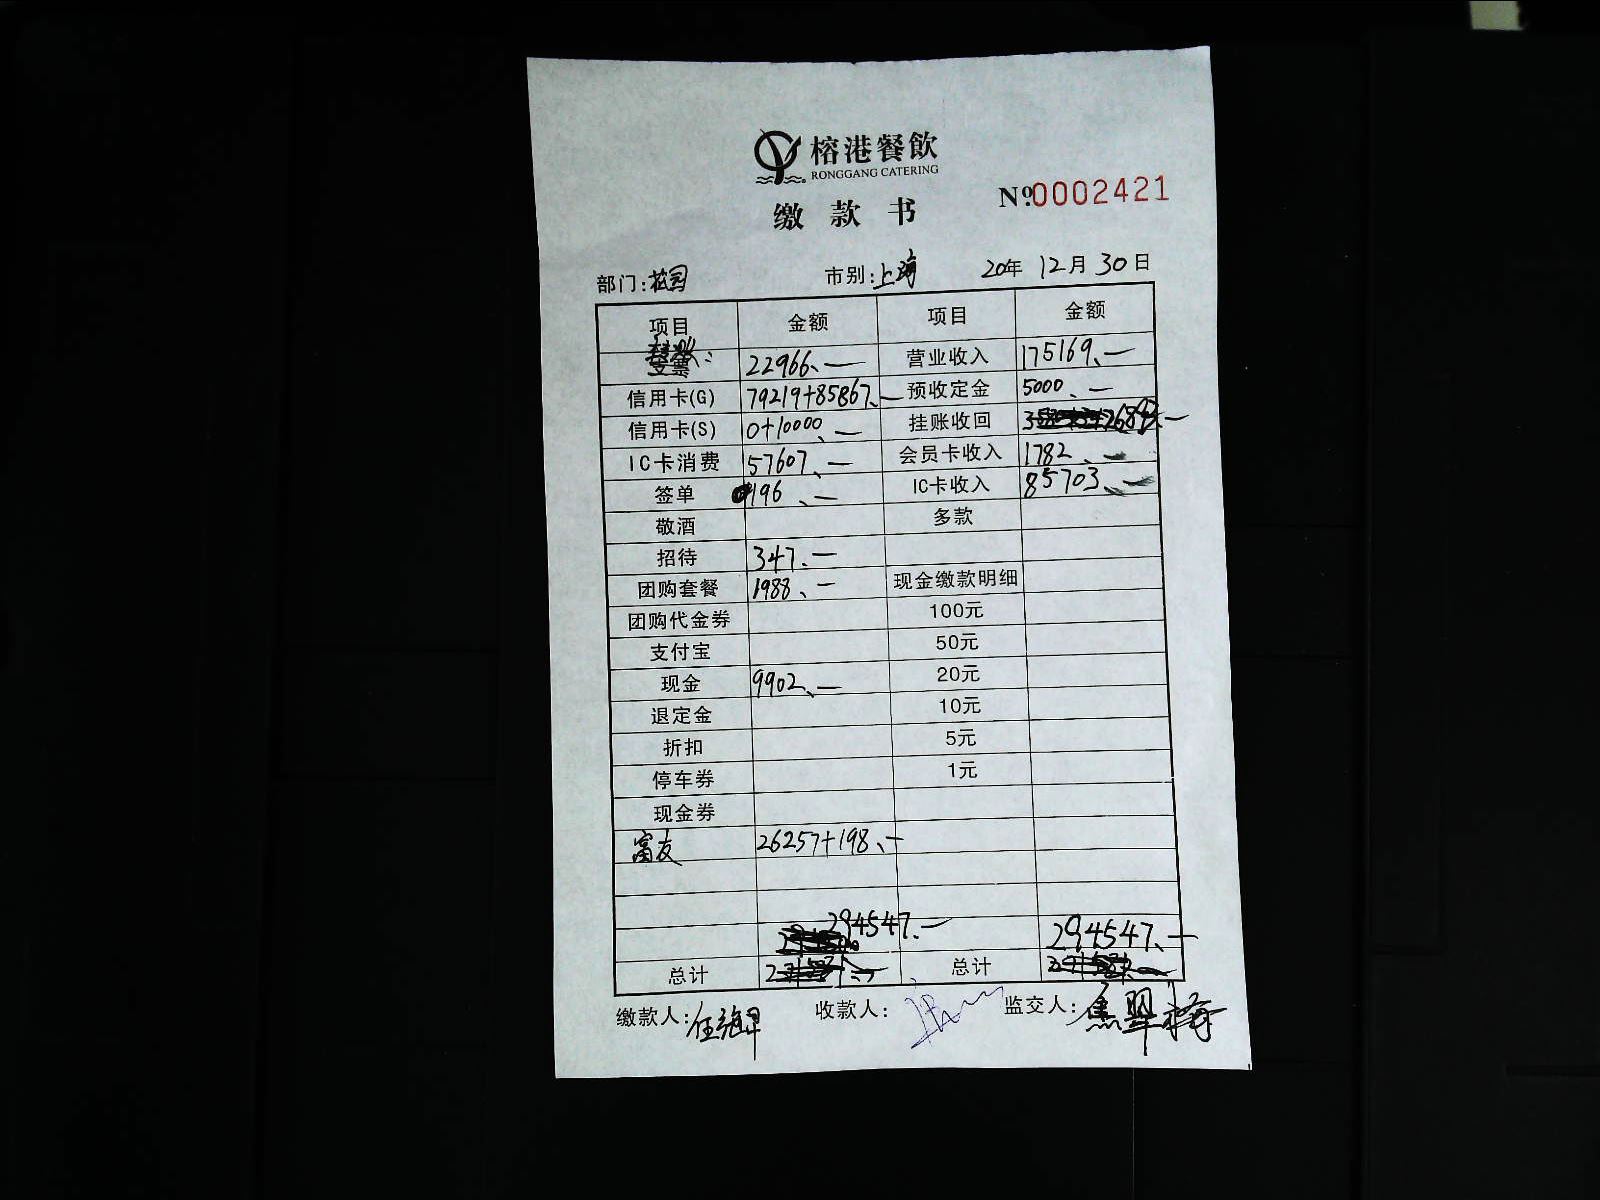 榕港餐飲
RONGGANG CATERING
缴款书
No.0002421
部门:花园 市别:上海 20年12月30日
项目 金额 项目 金额
支票 22966、— 营业收入 175169、—
信用卡(G) 79219+85867、— 预收定金 5000、—
信用卡(S) 0+10000、— 挂账收回
IC卡消费 57607、— 会员卡收入 1782、—
签单 196、— IC卡收入 85703、—
敬酒 多款
招待 347、—
团购套餐 1988、— 现金缴款明细
团购代金券 100元
支付宝 50元
现金 9902、— 20元
退定金 10元
折扣 5元
停车券 1元
现金券
富友 26257+198、—
294547、— 294547、—
总计 总计
缴款人: 收款人: 监交人:焦翠梅